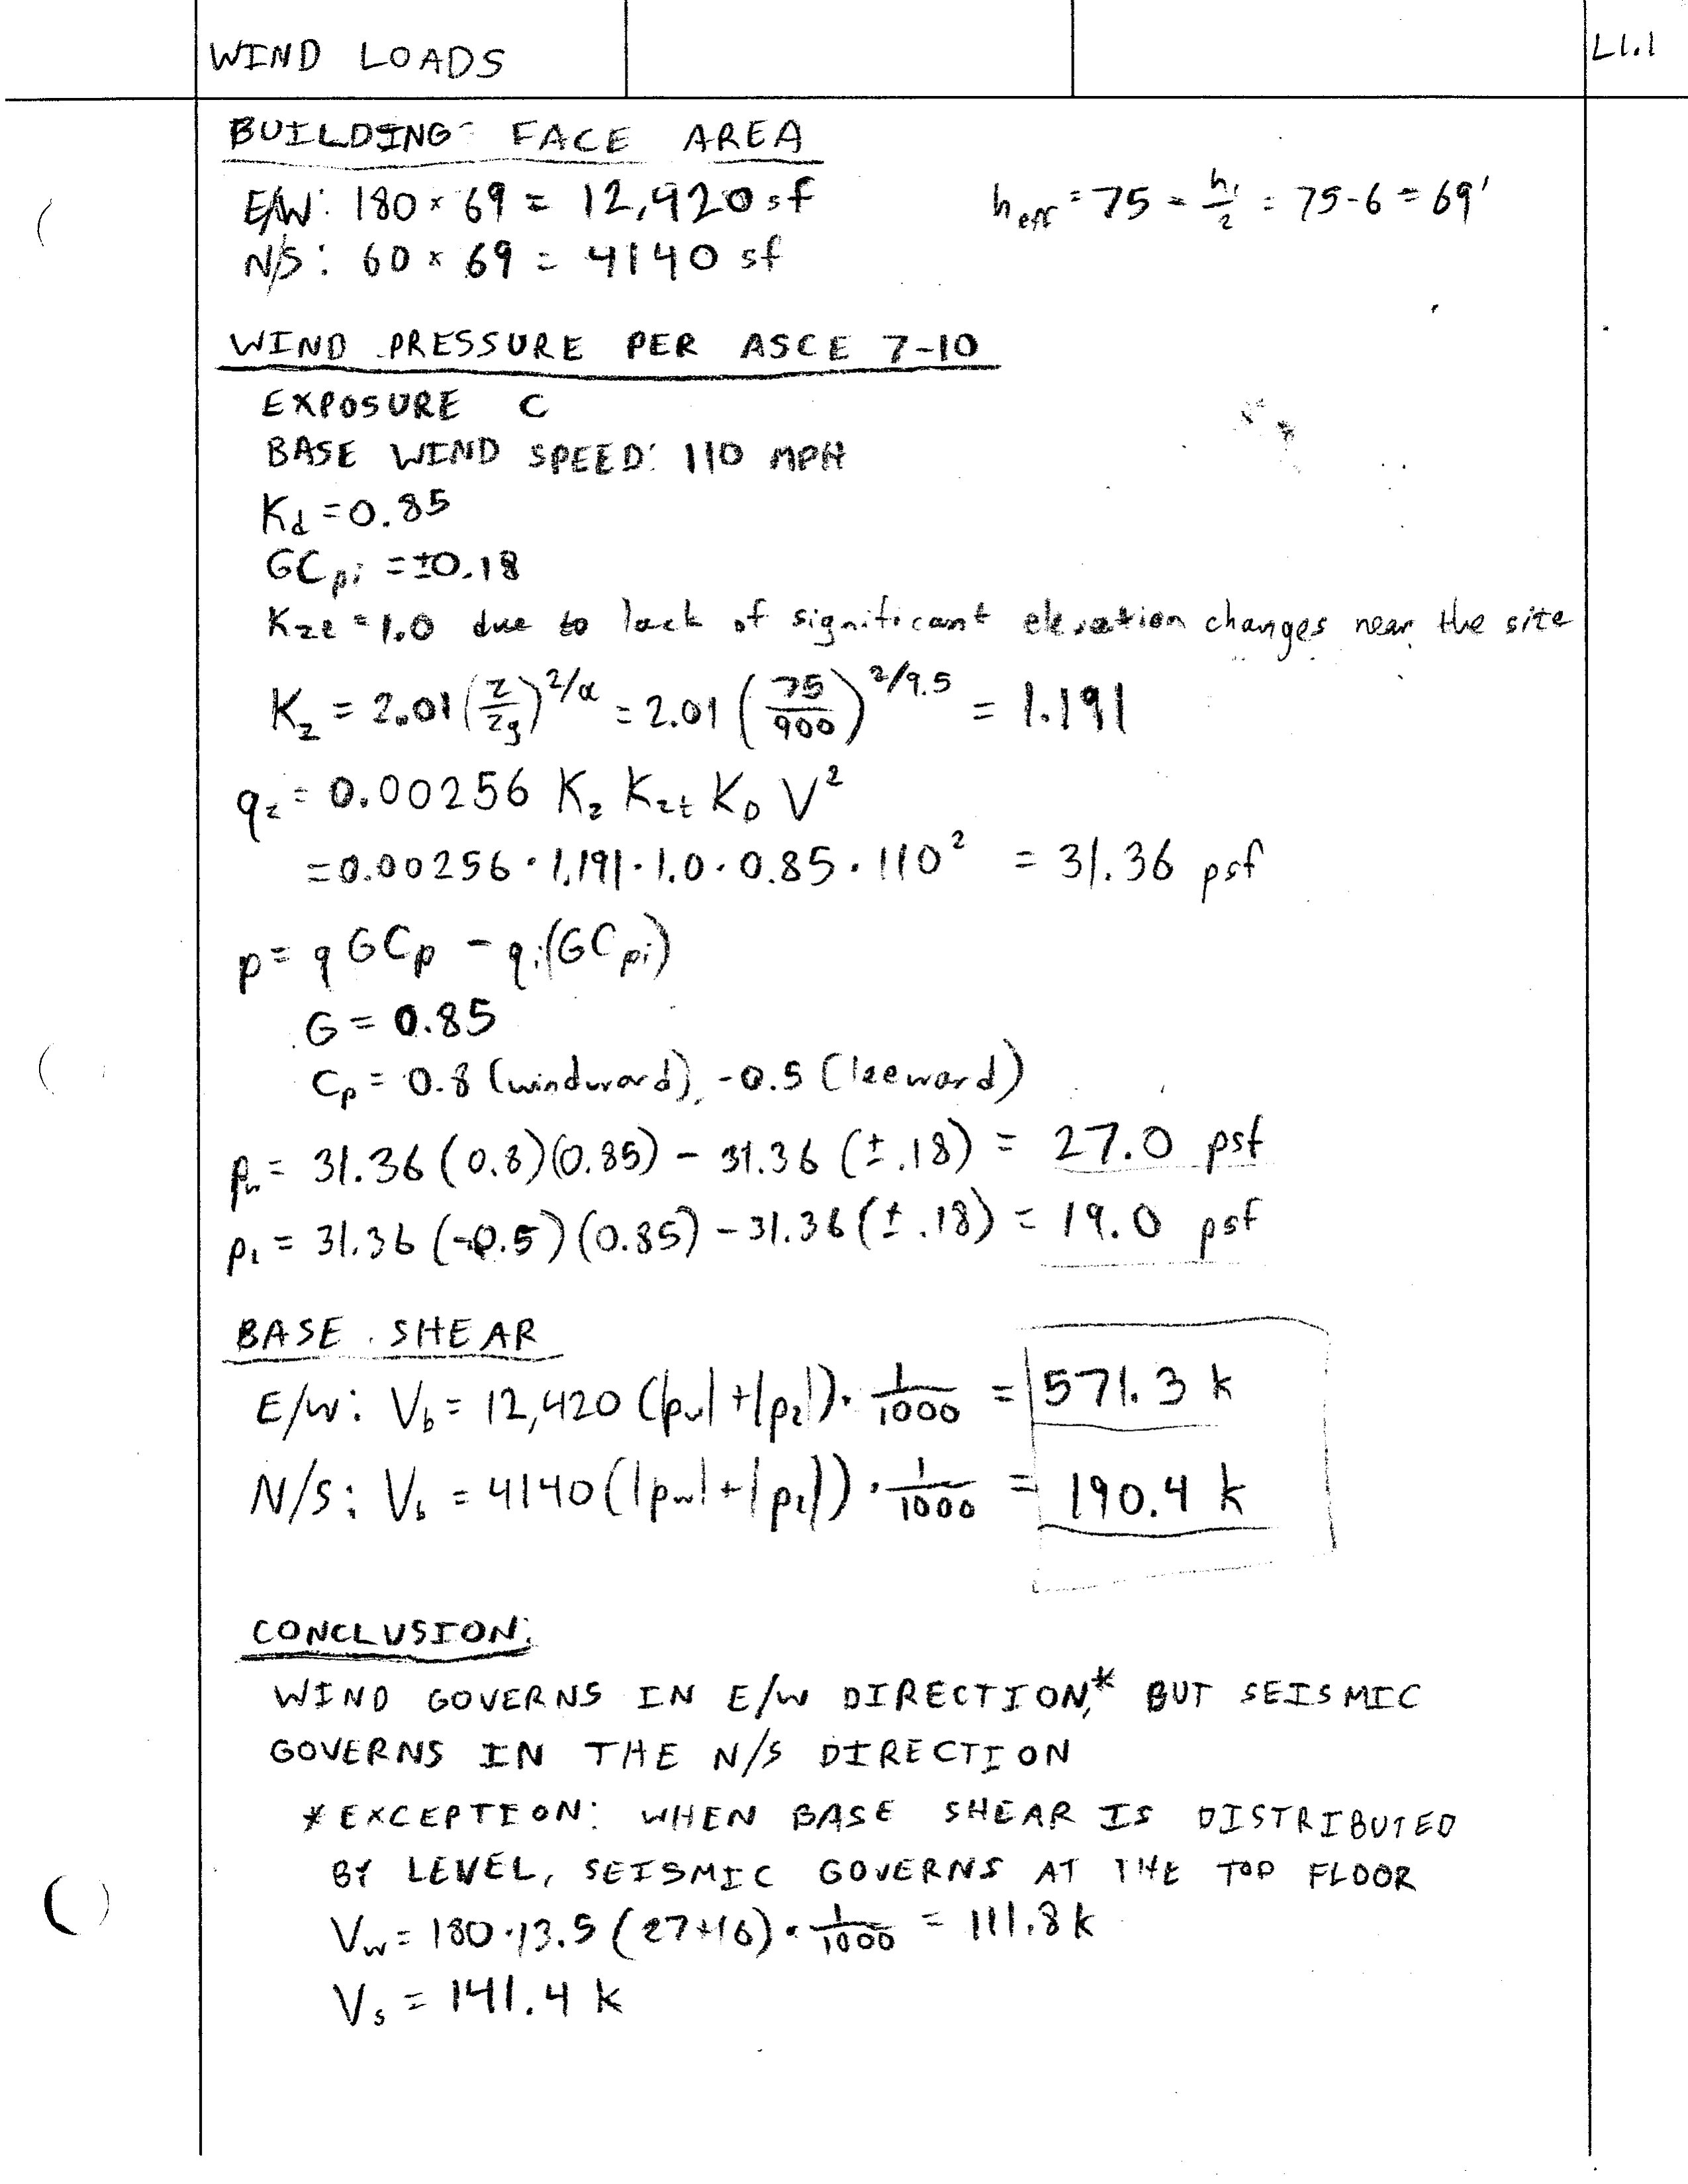 WIND LOADS
L1.1
BUILDING FACE AREA
E/W: 180 × 69 = 12,420 sf
h_eff = 75 - h₁/2 = 75-6 = 69'
N/S: 60 × 69 = 4140 sf
WIND PRESSURE PER ASCE 7-10
EXPOSURE C
BASE WIND SPEED: 110 MPH
K_d = 0.85
GC_pi = ±0.18
K_zt = 1.0 due to lack of significant elevation changes near the site
K_z = 2.01 (z/z_g)^2/α = 2.01 (75/900)^2/9.5 = 1.191
q_z = 0.00256 K_z K_zt K_D V²
= 0.00256 · 1.191 · 1.0 · 0.85 · 110² = 31.36 psf
p = q GC_p - q_i(GC_pi)
G = 0.85
C_p = 0.8 (windward), -0.5 (leeward)
p_w = 31.36 (0.8)(0.85) - 31.36 (±.18) = 27.0 psf
p_l = 31.36 (-0.5)(0.85) - 31.36 (±.18) = 19.0 psf
BASE SHEAR
E/W: V_b = 12,420 (|p_w|+|p_l|) · 1/1000 = 571.3 k
N/S: V_b = 4140 (|p_w|+|p_l|) · 1/1000 = 190.4 k
CONCLUSION:
WIND GOVERNS IN E/W DIRECTION,* BUT SEISMIC
GOVERNS IN THE N/S DIRECTION
*EXCEPTION: WHEN BASE SHEAR IS DISTRIBUTED
BY LEVEL, SEISMIC GOVERNS AT THE TOP FLOOR
V_w = 180 · 13.5 (27+19) · 1/1000 = 111.8 k
V_s = 141.4 k